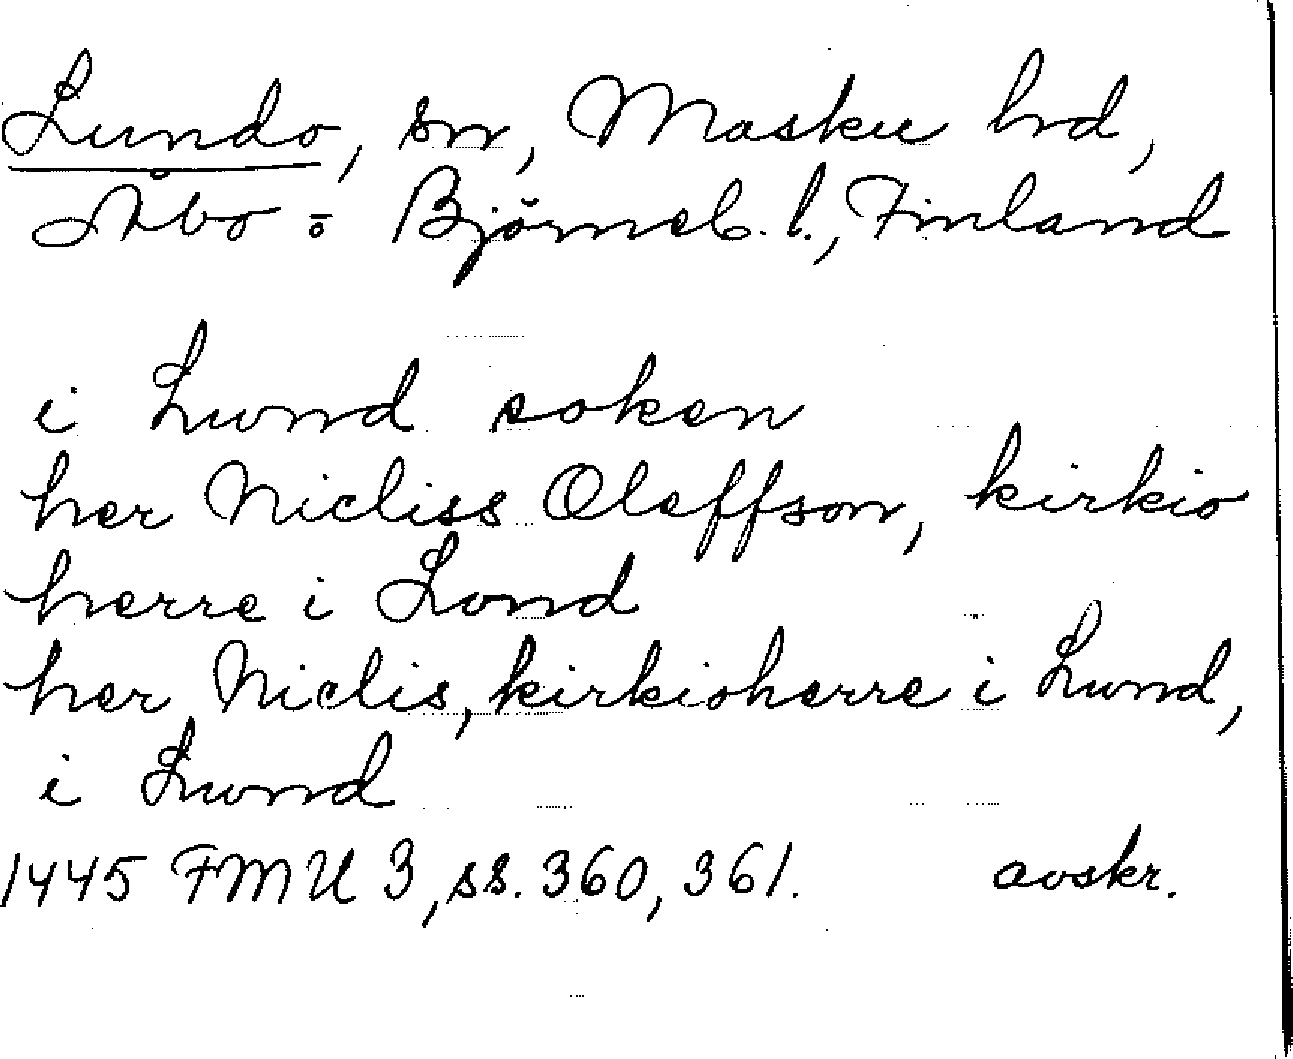 Lundo, sn, Masku hrd,
Åbo- o Björneb. l., Finland
i Lund soken
her Nicliss Oleffson, kirkio
herre i Lond
her Niclis, kirkioherre i Lund,
i Lund
1445 FMU 3, ss. 360, 361. avskr.